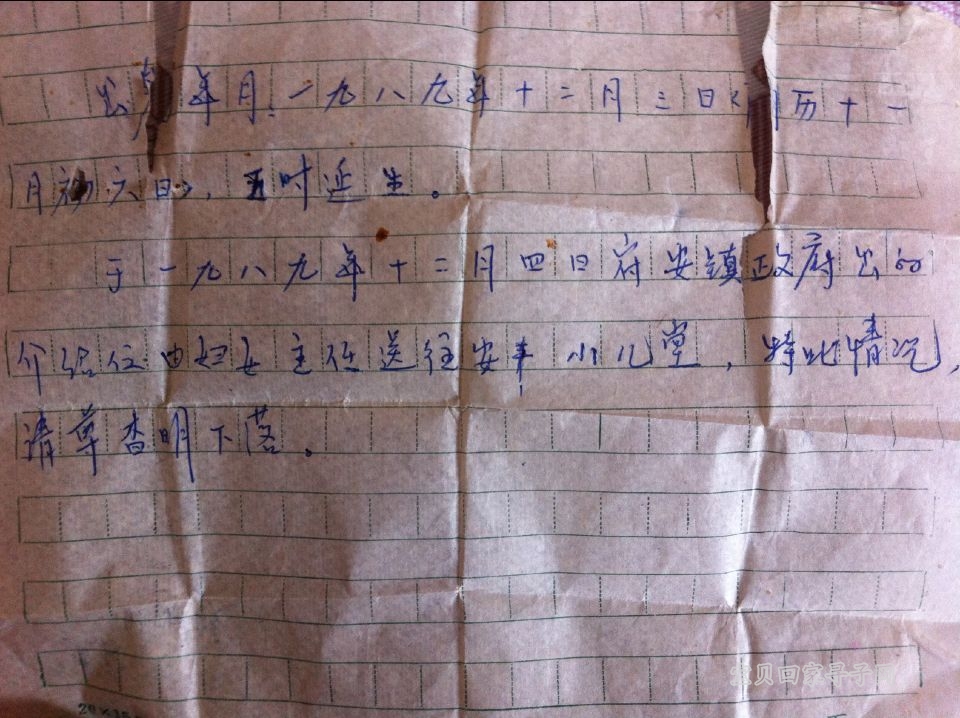 出生年月:一九八九年十二月三日(阴历十一
月初六日),五时延生。
于一九八九年十二月四日府安镇政府出的
介绍位由妇女主任送往安丰小儿堂,特此情况,
请尊查明下落。
宝贝回家寻子网
20×15